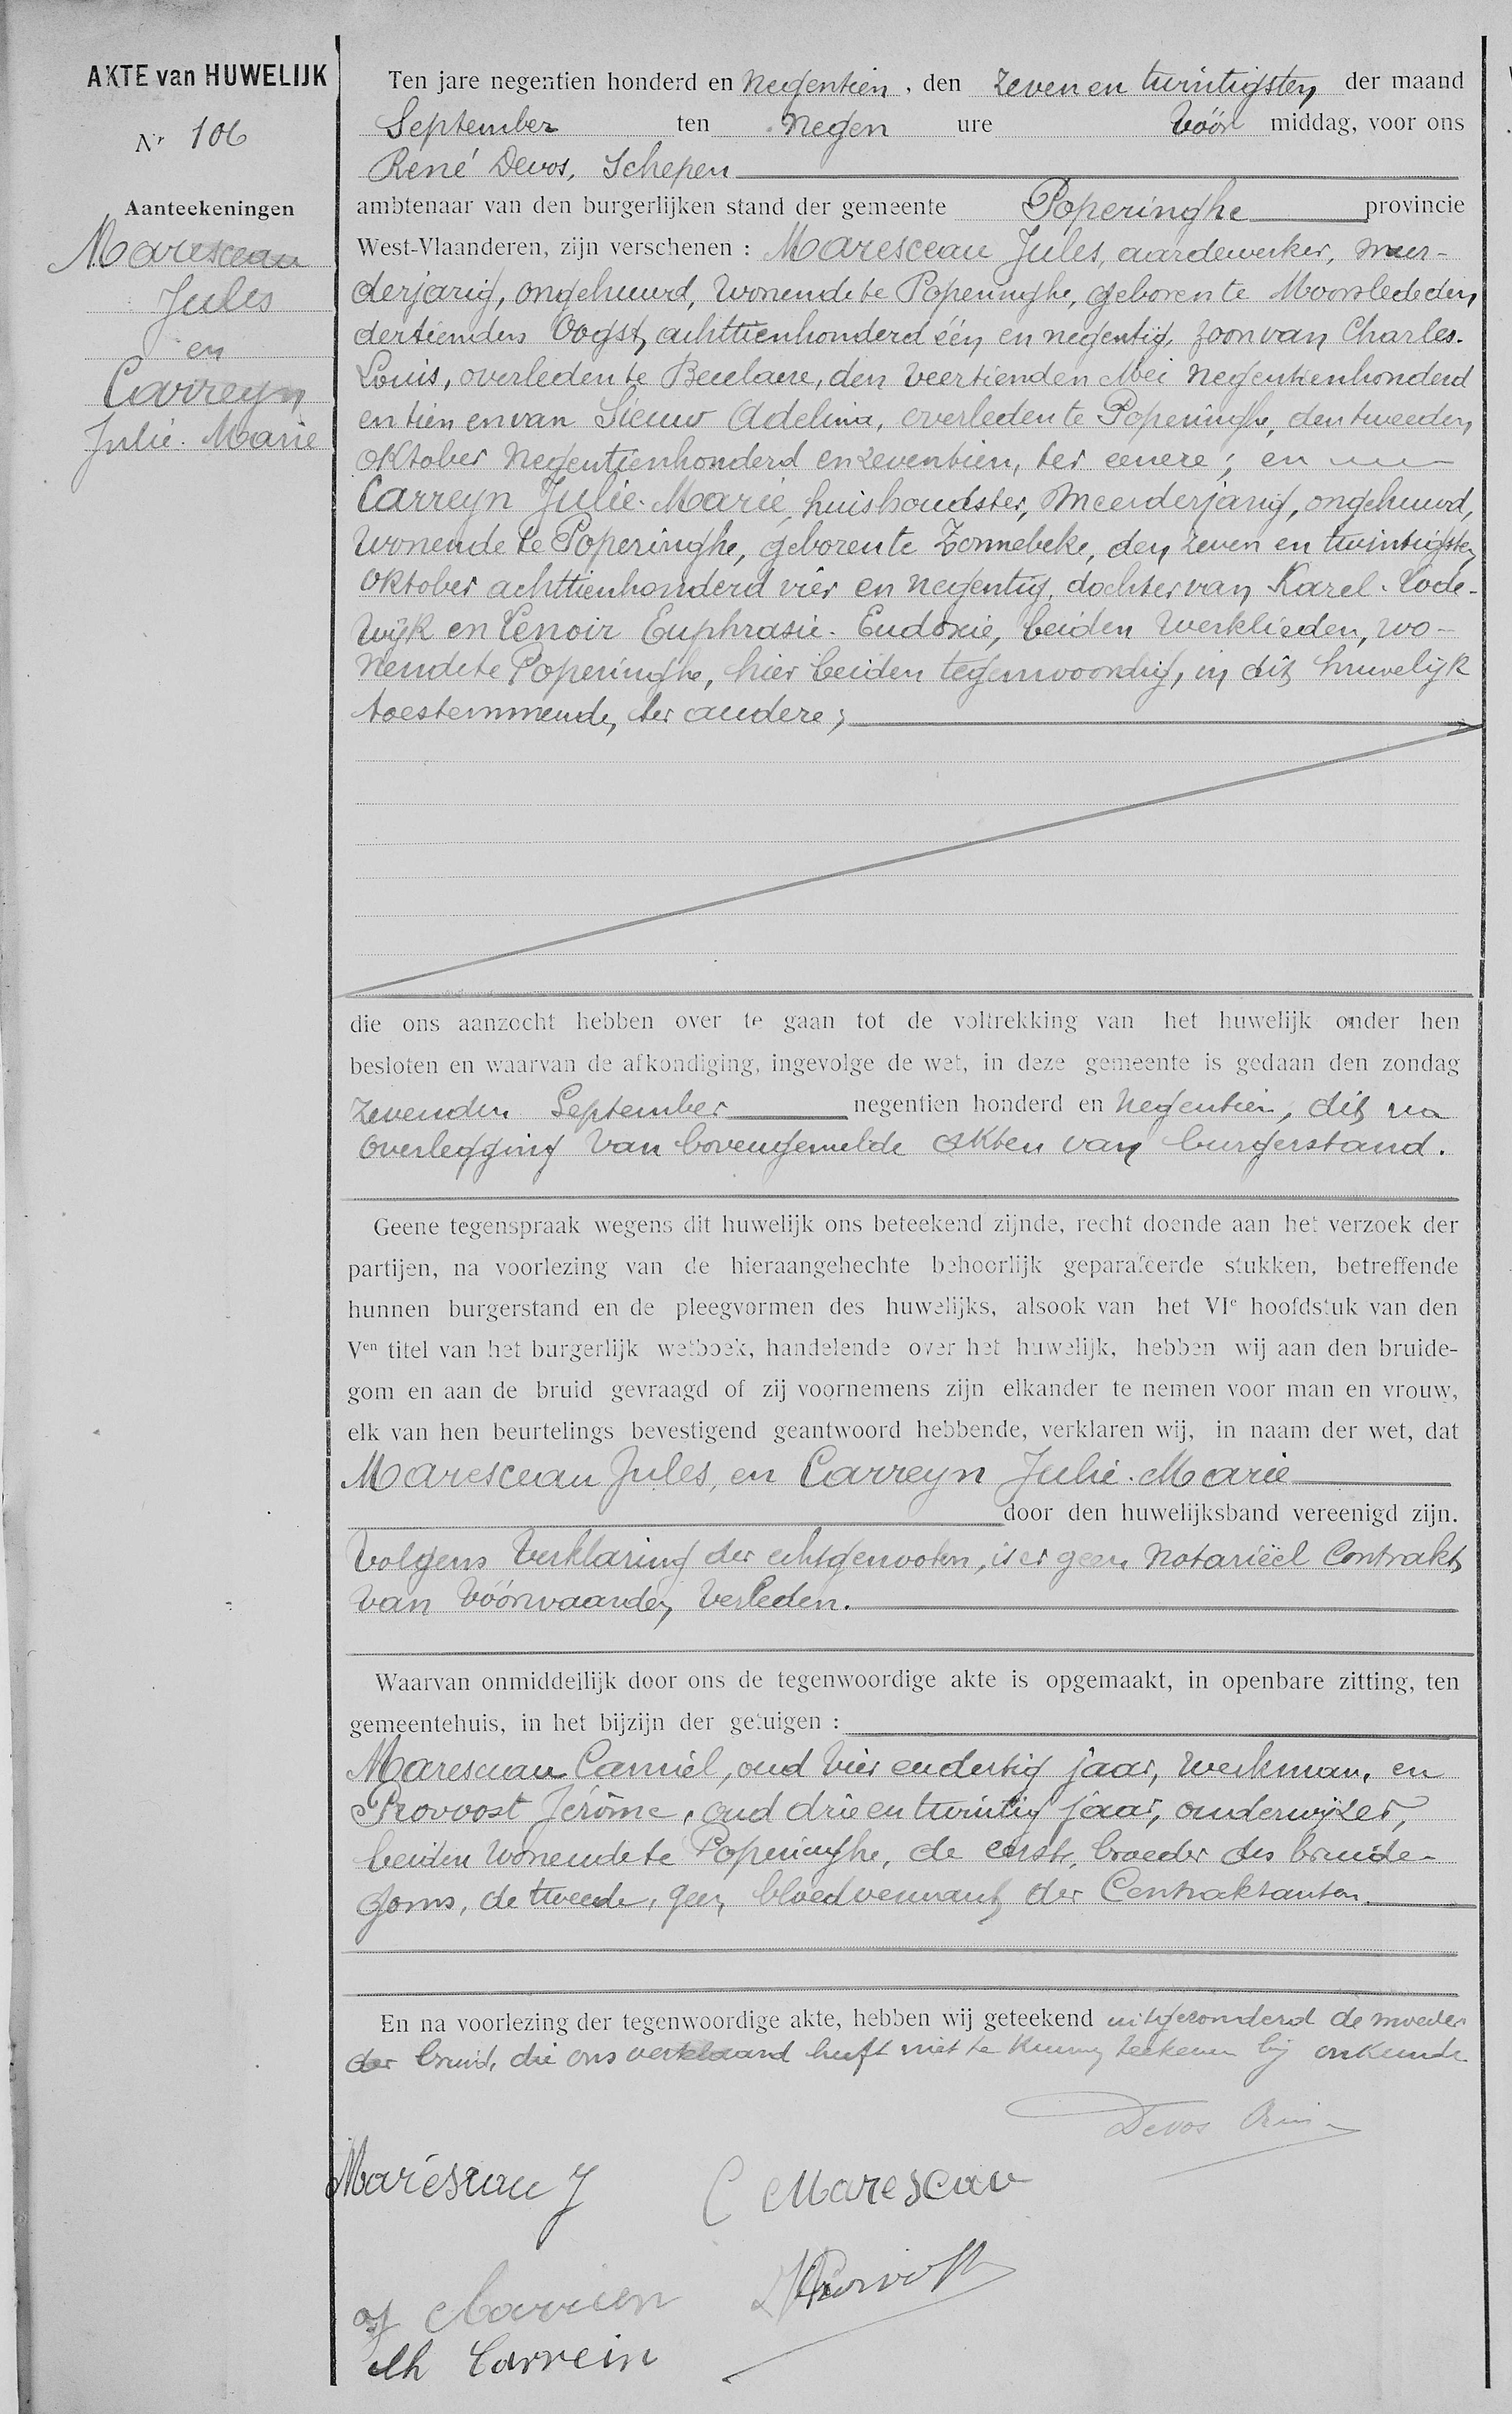 AKTE van HUWELIJK
Nr 106
Aanteekeningen
Maresceau
Jules
en
Carreyn
Julie-Marie
Ten jare negentien honderd en Negentien, den zeven en twintigsten der maand
September ten Negen ure vóór middag, voor ons
René Devos, Schepen
ambtenaar van den burgerlijken stand der gemeente Poperinghe provincie
West-Vlaanderen, zijn verschenen : Maresceau Jules, aardewerker, meer-
derjarig, ongehuwd, wonende te Poperinghe, geboren te Moorslede den
dertienden Oogst achttienhonderd één en negentig, zoon van Charles-
Louis, overleden te Becelaere, den veertienden Mei negentienhonderd
en tien en van Sieuw Adelina, overleden te Poperinghe, den tweeden
Oktober Negentienhonderd en zeventien, ter eenere ; en
Carreyn Julie-Marie, huishoudster, meerderjarig, ongehuwd,
wonende te Poperinghe, geboren te Zonnebeke, den zeven en twintigsten
Oktober achttienhonderd vier en negentig, dochter van Karel-Lode-
wijk en Lenoir Euphrasie-Eudoxie, beiden werklieden, wo-
nende te Poperinghe, hier beiden tegenwoordig, in dit huwelijk
toestemmende, ter andere ;
die ons aanzocht hebben over te gaan tot de voltrekking van het huwelijk onder hen
besloten en waarvan de afkondiging, ingevolge de wet, in deze gemeente is gedaan den zondag
zevenden September negentien honderd en Negentien, dit na
overlegging van bovengemelde akten van burgerstand.
Geene tegenspraak wegens dit huwelijk ons beteekend zijnde, recht doende aan het verzoek der
partijen, na voorlezing van de hieraangehechte behoorlijk geparafeerde stukken, betreffende
hunnen burgerstand en de pleegvormen des huwelijks, alsook van het VIe hoofdstuk van den
Ven titel van het burgerlijk wetboek, handelende over het huwelijk, hebben wij aan den bruide-
gom en aan de bruid gevraagd of zij voornemens zijn elkander te nemen voor man en vrouw,
elk van hen beurtelings bevestigend geantwoord hebbende, verklaren wij, in naam der wet, dat
Maresceau Jules, en Carreyn Julie-Marie
door den huwelijksband vereenigd zijn.
Volgens verklaring der echtgenooten, is er geen notariëel contrakt
van vóórwaarden verleden.
Waarvan onmiddellijk door ons de tegenwoordige akte is opgemaakt, in openbare zitting, ten
gemeentehuis, in het bijzijn der getuigen :
Maresceau Camiel, oud vier en dertig jaar, werkman, en
Provoost Jérôme, oud drie en twintig jaar, onderwijzer,
beiden wonende te Poperinghe, de eerste, broeder des bruide-
goms, de tweede, geen bloedverwant der Contraktanten.
En na voorlezing der tegenwoordige akte, hebben wij geteekend uitgezonderd de moeder
der bruid, die ons verklaard heeft niet te kunnen teekenen bij onkunde
Devos
Maresceau J
C Maresceau
Carrein
Provoost
Carrein